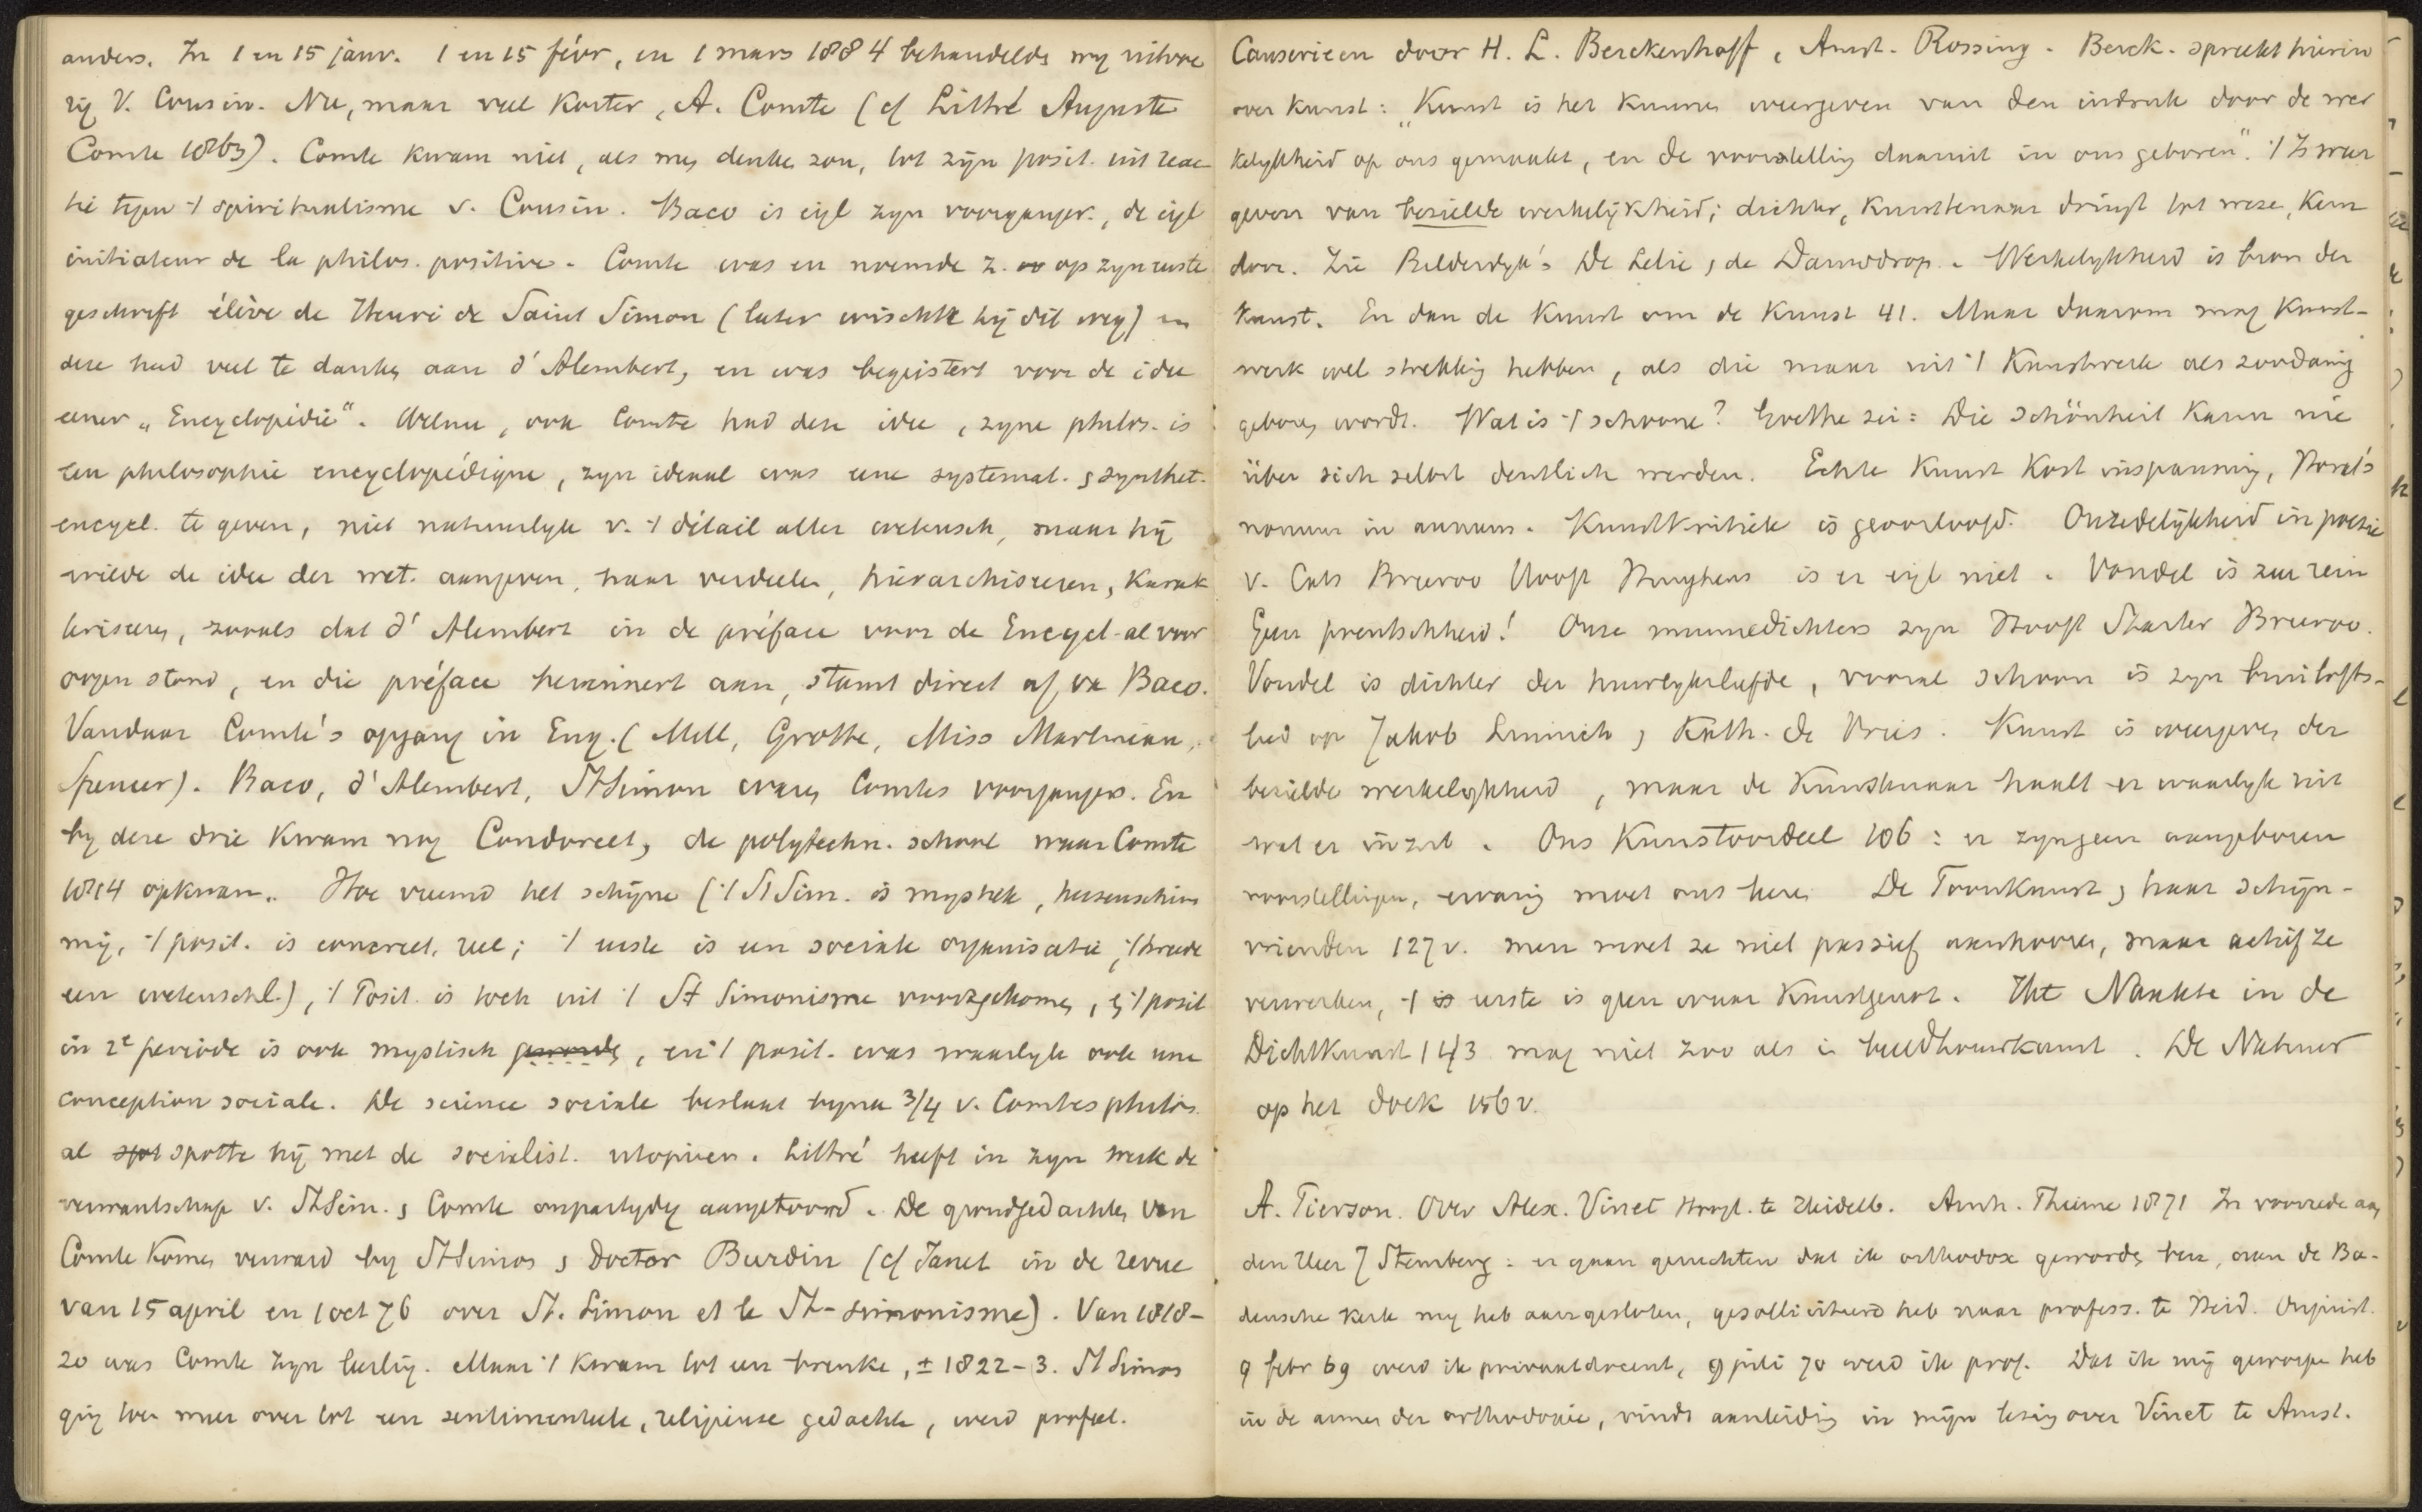 anders. In 1 en 15 janv. 1 en 15 févr, en 1 mars 1884 behandelde my uitvoe
rig V. Cousin. Nu, maar veel korter, A. Comte (cf Littré Auguste
Comte 1863). Comte kwam niet, als men denke zou, tot zijn posit. uit reac
tie tegen 't spiritualisme v. Cousin. Baco is eigl zyn voorganger, de eigl
initiateur de la philos. positive. Comte was en noemde z. op zyn eerste
geschrift élève de Henri de Saint Simon (later wischte hij dit weg) en
deze had veel te danken aan d'Alembert, en was begeistert voor de idee
eener „Encyclopédie“. Welnu, ook Comte had deze idee, zyne philos. is
een philosophie encyclopédique, zyn ideaal was eene systemat. & synthet.
encycl. te geven, niet natuurlyk v. 't détail aller wetensch, maar hij
wilde de idee der wet. aangeven, haar verdeelen, hiërarchiseeren, karak
teriseren, zooals dat d'Alembert in de préface voor de Encycl. al voor
oogen stond, en die préface herinnert aan, stamt direct af v. Baco.
Vandaar Comte's opgang in Eng. (Mill, Grotte, Miss Martineau,
Spencer). Baco, d'Alembert, St Simon waren Comtes voorgangers. En
by deze drie kwam nog Condorcet, de polytechn. school waar Comte
1814 opkwam. Hoe vreemd het schijne ('t St Sim. is mystiek, hersenschim
mig, 't posit. is concreet, reel; 't eerste is een sociale organisatie, 't tweede
een wetenschl.), 't Posit. is toch uit 't St Simonisme voortgekomen, & 't posit
in 2e periode is ook mystisch geworden, en 't posit. was waarlyk ook une
conception sociale. De science sociale beslaat byna 3/4 v. Comtes philos.
al spot spotte hij met de socialist. utopieen. Littré heeft in zyn werk de
verwantschap v. St Sim. & Comte onpartydig aangetoond. De grondgedachten van
Comte komen verward by St Simon & Doctor Burdin (cf Janet in de revue
van 15 april en 1 oct 76 over St. Simon et le St-Simonisme). Van 1818-
20 was Comte zyn leerling. Maar 't kwam tot een breuke, ± 1822-3. St Simon
ging toen meer over tot een sentimenteele, religieuse gedachte, werd profeet.
Causerieen door H. L. Berckenhoff, Amst. Rössing. Berck. spreekt hierin
over kunst: „Kunst is het kunnen weergeven van den indruk door de wer
kelykheid op ons gemaakt, en de voorstelling daaruit in ons geboren“. 't Is weer
geven van bezielde werkelijkheid; dichter, kunstenaar dringt tot weze, kern
door. Zie Bilderdyk's De Lelie & de Dauwdrop. Werkelykheid is bron der
kunst. En dan de Kunst om de Kunst 41. Maar daarom mag Kunst-
werk wel strekking hebben, als die maar uit 't Kunstwerk als zoodanig
geboren wordt. Wat is 't schoone? Goethe zei: Die Schönheit kann nie
über sich selbst deutlich werden. Echte Kunst kost inspanning, Horat's
nonum in annum. Kunstkritiek is geoorloofd. Onzedelijkheid in poezie
v. Cats Breeroo Hooft Huyghens is er eigl niet. Vondel is zeer rein
Geen preutschheid! Onze minnedichters zyn Hooft Starter Breeroo.
Vondel is dichter der huwlyksliefde, vooral schoon is zyn bruilofts-
lied op Jakob Linnich & Kath. de Vries. Kunst is weergeven der
bezielde werkelykheid, maar de Kunstenaar haalt er waarlyk uit
wat er inzit. Ons Kunstoordeel 106: er zyn geen aangeboren
voorstellingen, ervaring moet ons leren De Toonkunst & haar schijn-
vrienden 127 v. men moet ze niet passief aanhooren, maar actief ze
verwerken, 't is eerste is geen waar Kunstgenot. Het Naakte in de
Dichtkunst 143 mag niet zoo als in beeldhouwkunst. De Natuur
op het doek 156 v.
A. Pierson. Over Alex. Vinet Hoogl. te Heidelb. Arnh. Thieme 1871 In voorrede aan
den Heer J Stemberg: er gaan geruchten dat ik orthodox geworden ben, aan de Ba-
densche kerk my heb aangesloten, gesolliciteerd heb naar profess. te Heid. Onjuist.
9 febr 69 werd ik privaatdocent, 9 juli 70 werd ik prof. Dat ik mij geworpen heb
in de armen der orthodoxie, vindt aanleiding in mijn lezing over Vinet te Amst.